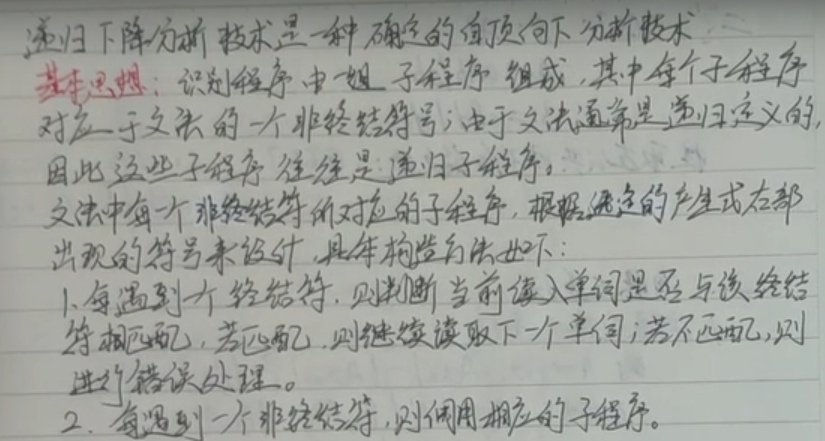 递归下降分析技术是一种确定的自顶向下分析技术
基本思想：识别程序由一组子程序组成，其中每个子程序
对应于文法的一个非终结符号；由于文法通常是递归定义的，
因此这些子程序往往是递归子程序。
文法中每一个非终结符所对应的子程序，根据选定的产生式右部
出现的符号来设计，具体构造方法如下：
1、每遇到一个终结符，则判断当前读入单词是否与该终结
符相匹配，若匹配，则继续读取下一个单词；若不匹配，则
进行错误处理。
2、每遇到一个非终结符，则调用相应的子程序。